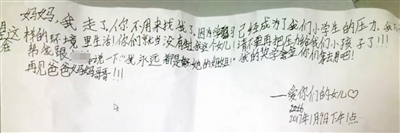 妈妈,我走了,你不用来找我了,因为学习已经成为了我们小学生的压力。我
这样的环境里生活!你们就当没有我这个女儿!请不要再把压力给我们小孩子了!!!
弟弟 说一下 永远都是 她的姐姐!我的奖学金 你们拿去用吧!
再见爸爸妈妈哥哥!!!
——爱你们的女儿♡
2017年1月9日下午1点